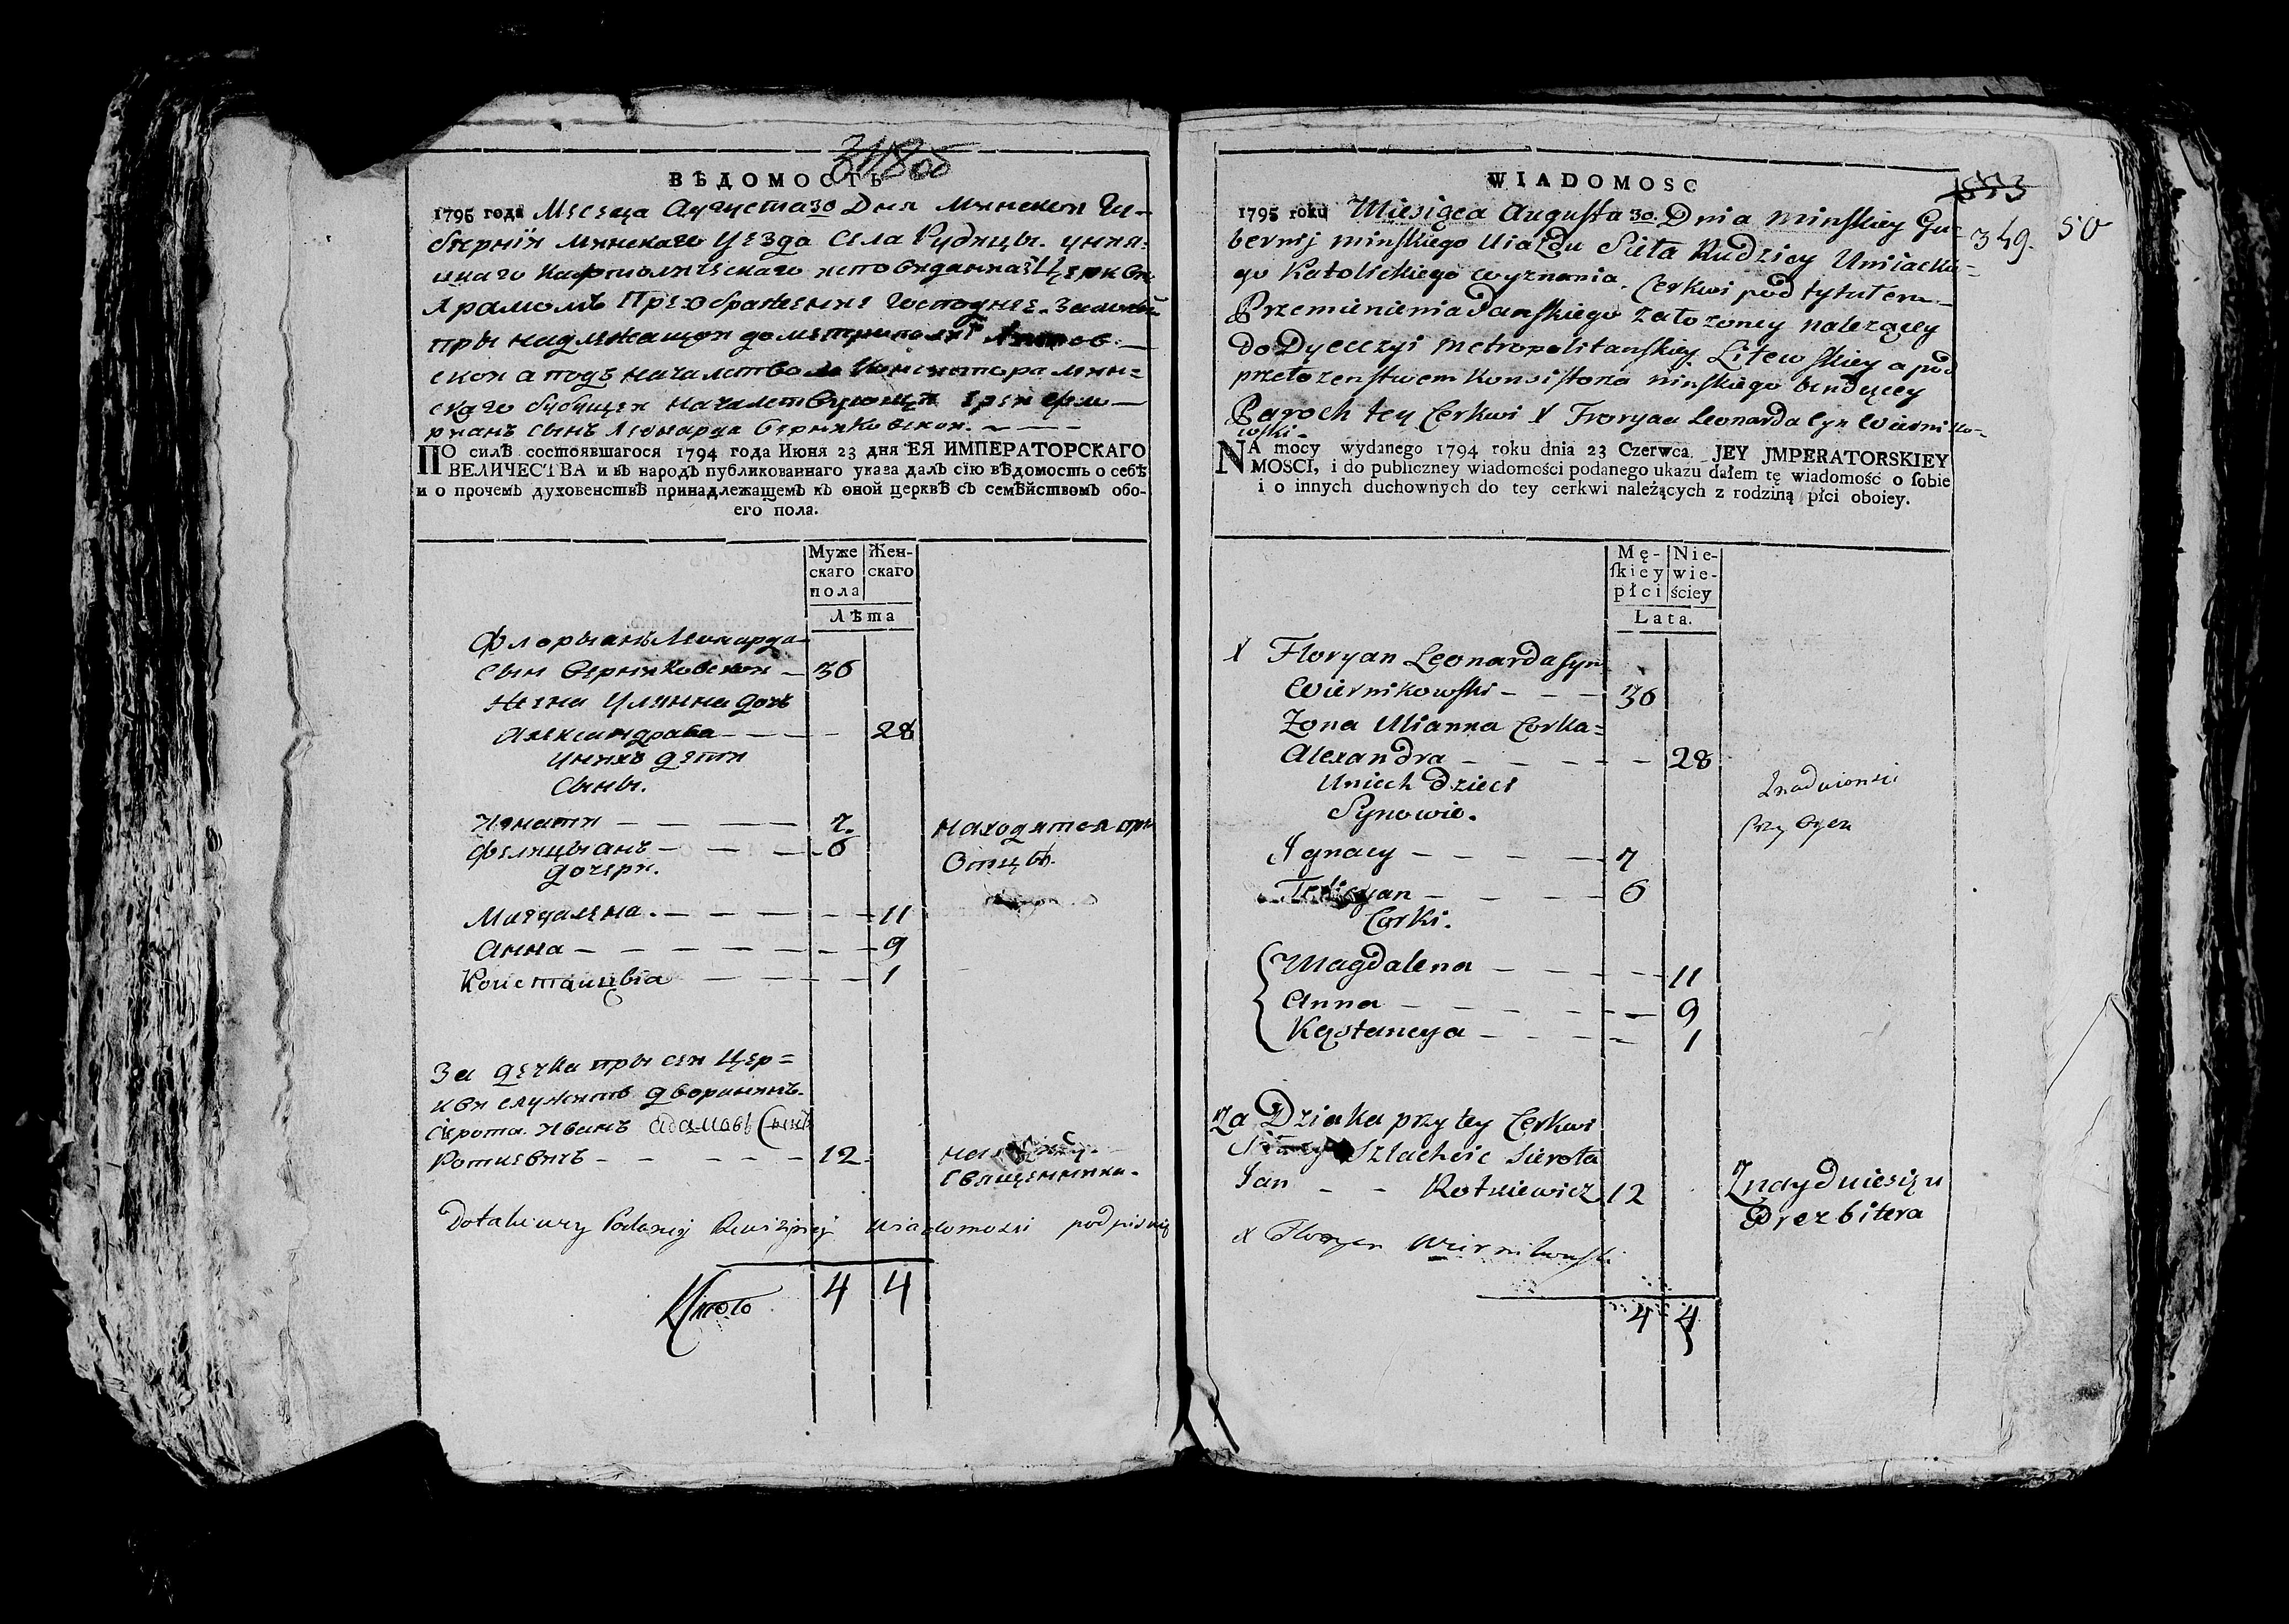 348об
ВѢДОМОСТЬ
1795 года Месеца Августа 30 Дня Минской Гу-
бернiи Минскаго Уезда Села Рудицы. уния-
цкаго Католическаго исповиданиа Церкви
Храмомъ Преображения Господнее.
при надлежащой до метрополiи
ской а подъ началством Консистора мин=
скаго будущей началствующи Iерей фло-
рианъ сынъ Леонарда Верниковской. ~ - - -
ПО силѣ состоявшагося 1794 года Июня 23 дня ЕЯ ИМПЕРАТОРСКАГО
ВЕЛИЧЕСТВА и въ народъ публикованнаго указа далъ сїю вѣдомость о себѣ
и о прочемъ духовенствѣ принадлежащемъ къ оной церквѣ съ семѣйствомъ обо-
его пола.
Муже
скаго
пола
Жен-
скаго
Лѣта
Флорыанъ Леонарда
Сын Верниковской - 36
Жена Улянна дочь
Александрава - - - - 28
Униxъ дети
Сыны.
Игнати - - - - 7.
Фелицыанъ - - - - 6
находятся при
Отцѣ.
дочери.
Магдалена. - - - - - 11
Анна - - - - - - - 9
Констанцыа - - - - 1
За дечка при сей Цер=
кви служитъ дворининъ.
Сирота Иванъ Адамовъ Сынъ
Роткевичъ - - - - - 12
Священника.
Dotakowey Podaney Rewizyiney wiadomosci podpisuię
Итого 4 4
WIADOMOSC
573
349.
50
1795 roku Miesiąca Augusta 30. Dnia Minskiey Gu-
bernij minskiego Uiazdu Sieła Rudzicy Uniackie=
go Katolickiego wyznania. Cerkwi pod tytułem
Przemienienia Panskiego założoney należącey
do Dyecezyi Metropolitanskiey Litewskiey a pod
przełozenstwem Konsistorza minskiego bendącey
Paroch tey Cerkwi X Floryan Leonarda Syn Wierniko-
wski.
NA mocy wydanego 1794 roku dnia 23 Czerwca JEY JMPERATORSKIEY
MOSCI, i do publiczney wiadomości podanego ukazu dałem tę wiadomość o ſobie
i o innych duchownych do tey cerkwi należących z rodziną płci oboiey.
Mę-
ſkiey
płci
Nie-
wie-
ściey
Lata.
X Floryan Leonarda syn
Wiernikowski - - - 36
Zona Ulianna Corka=
Alexandra - - - - - 28
Uniech Dzieci
Synowie.
Znaduionsie
przy Oycu
Ignacy - - - - 7
Felicyan - - - - 6
Corki.
Magdalena - - - - - 11
Anna - - - - - - 9
Kąstancya - - - - - 1
Za Dziaka przy tey Cerkwi
Szlachcic Sierota
Jan - - Rotkiewicz 12
Znayduiesię u
Prezbitera
X Floryan Wiernikowski
4 4